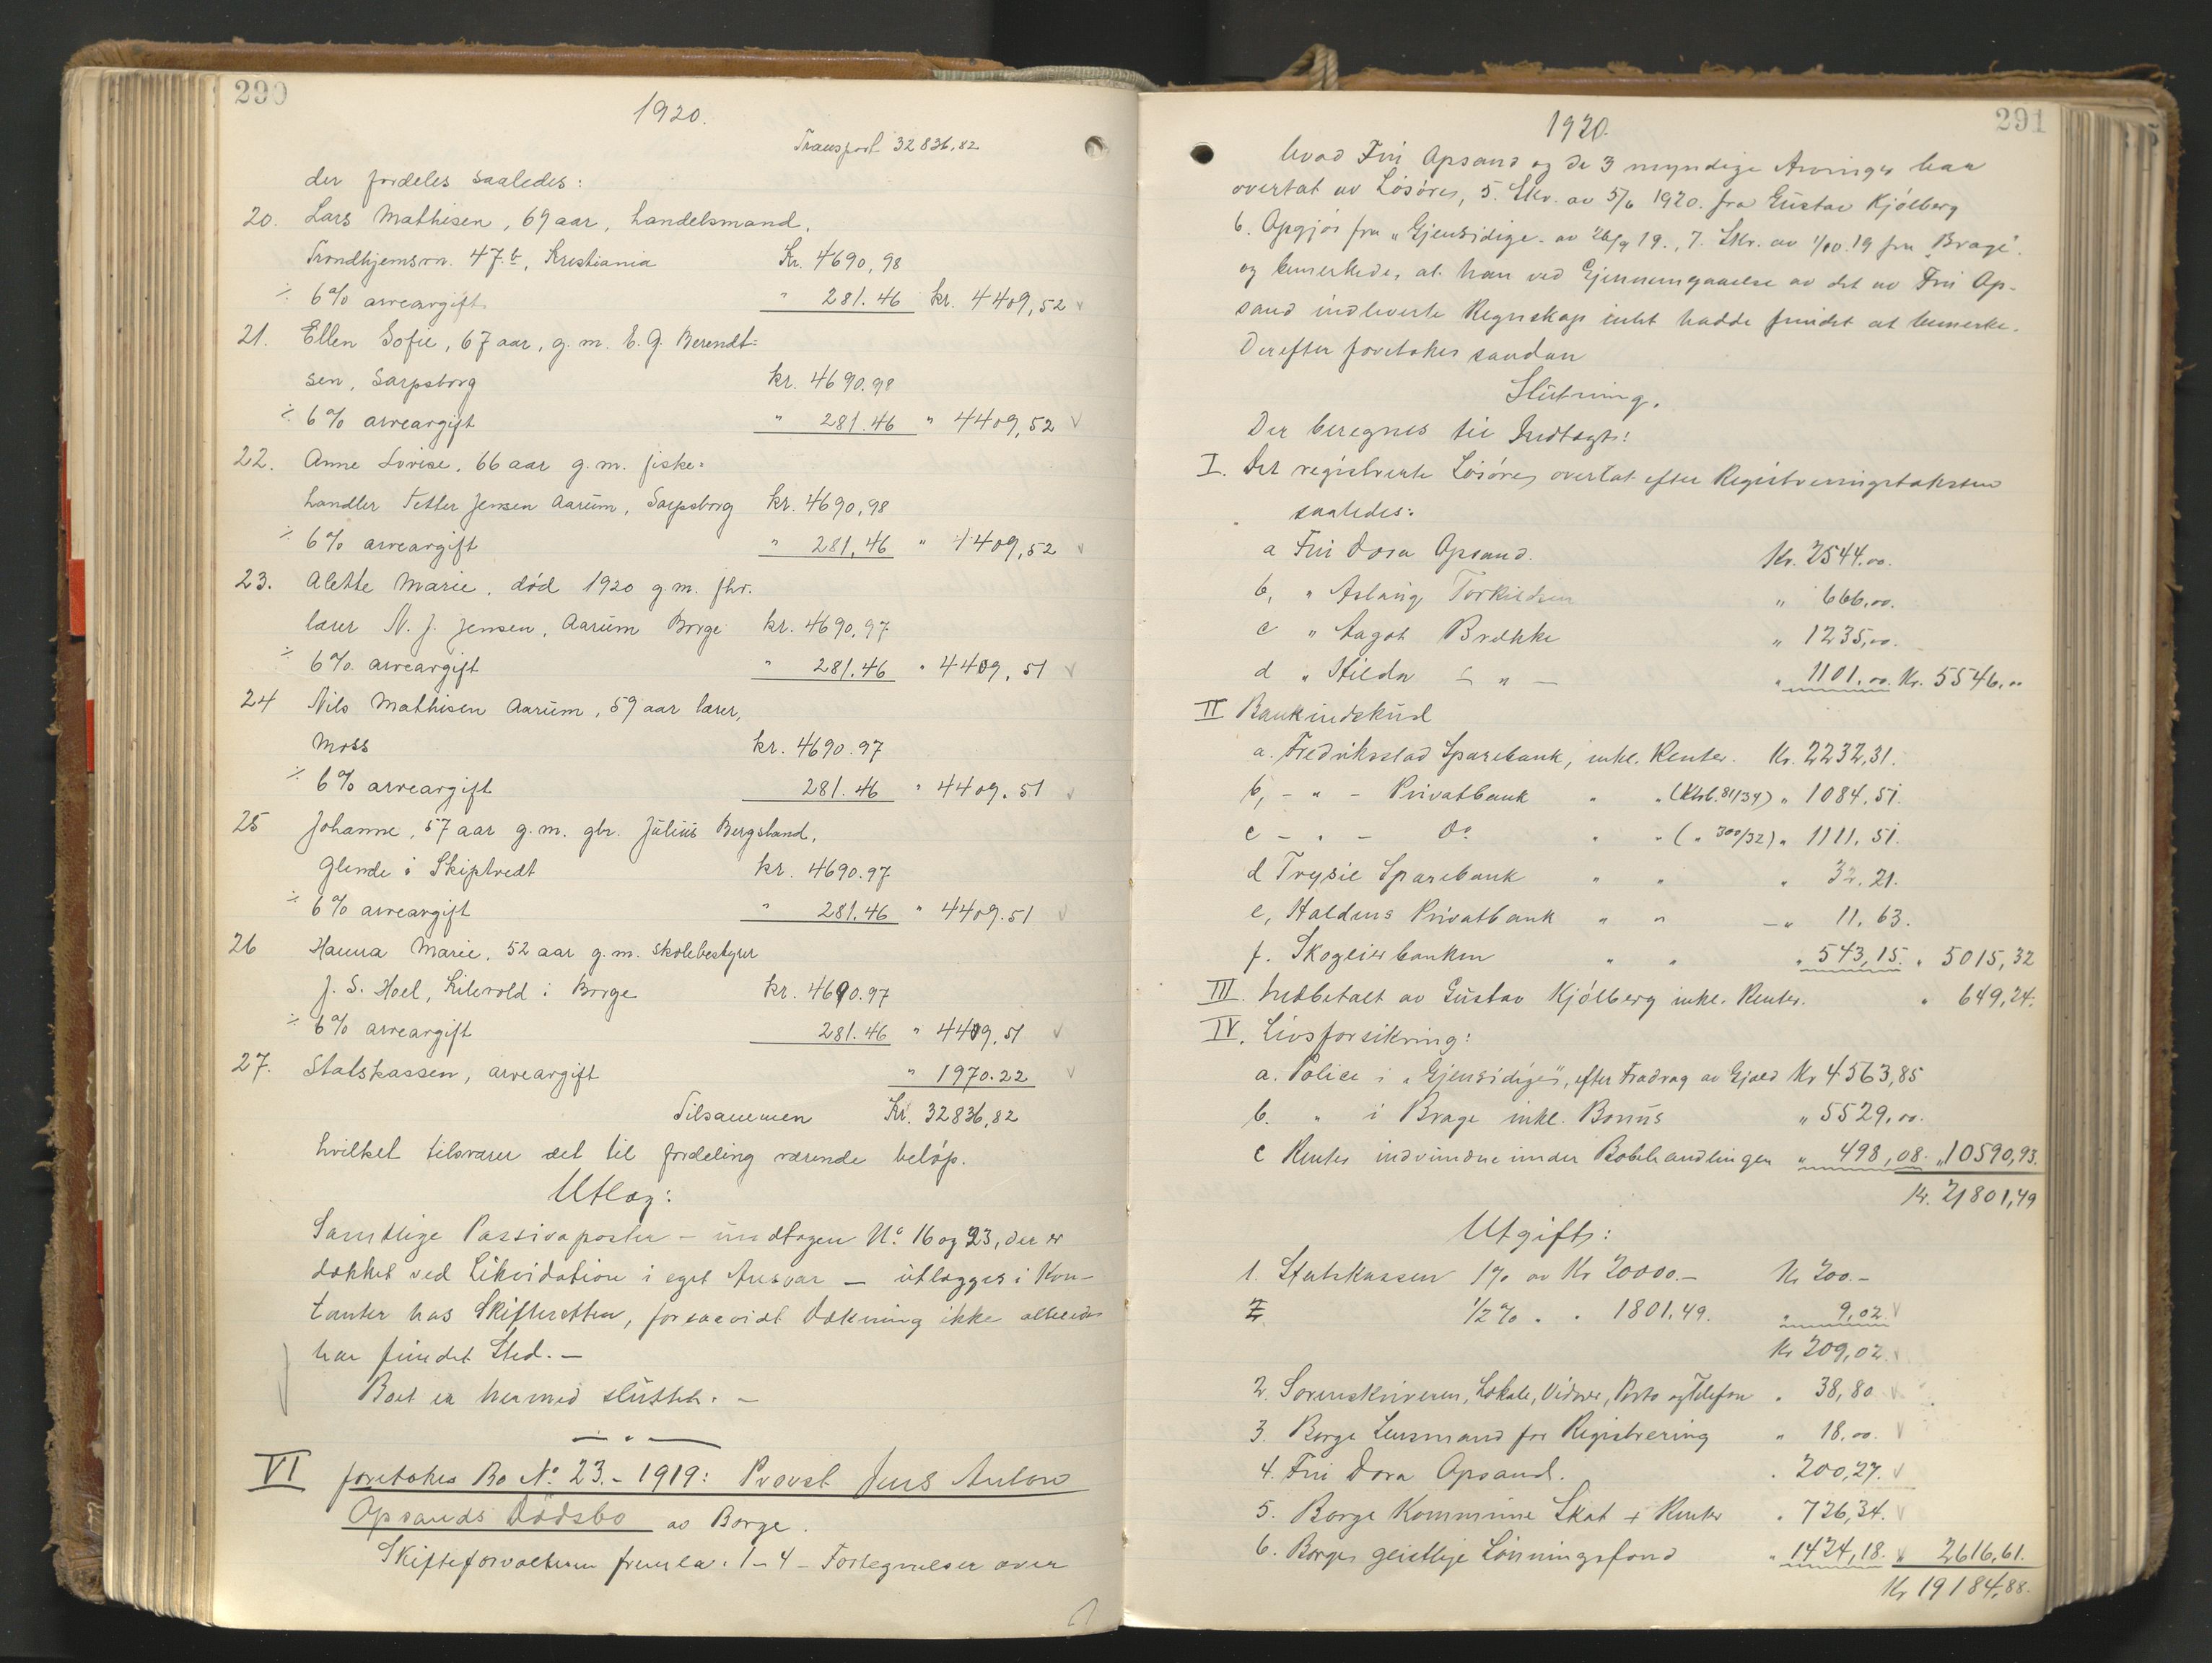 290
1920.
Transport 32836,82
der fordeles saaledes:
20. Lars Mathisen, 69 aar, handelsmand,
Trondhjemsvn. 47.b, Kristiania Kr. 4690,98
÷ 6% arveavgift " 281.46 kr. 4409,52
21. Ellen Sofie, 67 aar, g. m. E. G. Berendt=
sen, Sarpsborg kr. 4690.98
÷ 6% arveavgift " 281.46 " 4409,52
22. Anne Lovise, 66 aar g. m. fiske=
handler Petter Jensen Aarum, Sarpsborg kr. 4690,98
÷ 6% arveavgift " 281,46 " 4409,52
23. Alette Marie, död 1920 g. m. fhv.
lærer N. J. Jensen, Aarum Borge kr. 4690,97
÷ 6% arveavgift " 281.46 " 4409,51
24 Nils Mathisen Aarum, 59 aar lærer,
Moss kr. 4690.97
÷ 6% arveavgift 281.46 " 4409.51
25 Johanne, 57 aar g. m. gbr. Julius Bergsland,
Glende i Skiptvedt kr. 4690.97
÷ 6% arveavgift " 281.46 " 4409.51
26 Hanna Marie, 52 aar g. m. skolebestyrer
J. S. Hoel, Lilevold i Borge kr. 4690.97
÷ 6% arveavgift 281.46 " 4409,51
27. Statskassen, arveavgift " 1970.22
Tilsammen Kr. 32836,82
hvilket tilsvarer det til fordeling værende beløp.
Utlæg:
Samtlige Passivaposter – undtagen No. 16 og 23, der er
dækket ved Likvidation i eget Ansvar – utlægges i Kon-
tanter hos Skifteretten, forsaavidt Dækning ikke allerede
har fundet Sted. –
Boet er hermed sluttet. –
VI foretokes Bo No. 23. - 1919: Provst Jens Anton
Opsands Dødsbo av Borge.
Skifteforvalteren fremla: 1–4 – Fortegnelser over
291
1920.
hvad Fru Opsand og de 3 myndige Arvinger har
overtat av Løsøre, 5. Skr. av 5/6 1920. fra Gustav Kjølberg
6. Opgjør fra "Gjensidige" av 26/9 19., 7. Skr. av 1/10.19 fra "Brage".
og bemerkede, at han ved Gjennemgaaelse av det av Fru Op-
sand indleverte Regnskap intet hadde fundet at bemerke.
Derefter foretokes saadan
Slutning.
Der beregnes til Indtægt:
I. Det registrerte Løsøre, overtat efter Registreringstaksten
saaledes:
a Fru Dora Opsand. Kr. 2544.00.
b, " Aslaug Torkildsen " 666,00.
c " Aagot Brække " 1235,00.
d " Hilda – " – " 1101.00. Kr. 5546.00
II Bankindskud
a. Fredriksstad Sparebank, inkl. Renter. Kr. 2232,31.
b, – " – Privatbank " " (Ktrb. 81/34) " 1084,51.
c – " – Do. " " ( " 300/32) " 1111,51.
d Trysil Sparebank " " " 32.21.
e, Haldens Privatbank " " – " 11,63.
f. Skogeierbanken " " " 543,15. " 5015,32
III. Indbetalt av Gustav Kjølberg inkl. Renter. " 649,24.
IV. Livsforsikring:
a. Police i "Gjensidige", efter Fradrag av Gjæld Kr 4563,85
b. " i Brage inkl. Bonus " 5529,00.
c Renter indvundne under Bobehandlingen " 498,08. " 10590,93.
Kr. 21801,49
Utgift:
1. Statskassen 1% av Kr 20000.– Kr 200.–
1/2% " " 1801,49. " 9,02
Kr 209,02
2. Sorenskriveren, Lokale, Vidner, Porto og Telefon " 38,80
3. Borge Lensmand for Registrering " 18.00.
4. Fru Dora Opsand. " 200,27.
5. Borge Kommune Skat + Renter " 726,34.
6. Borges geistlige Lønningsfond " 1424,18. " 2616,61.
Kr 19184,88.